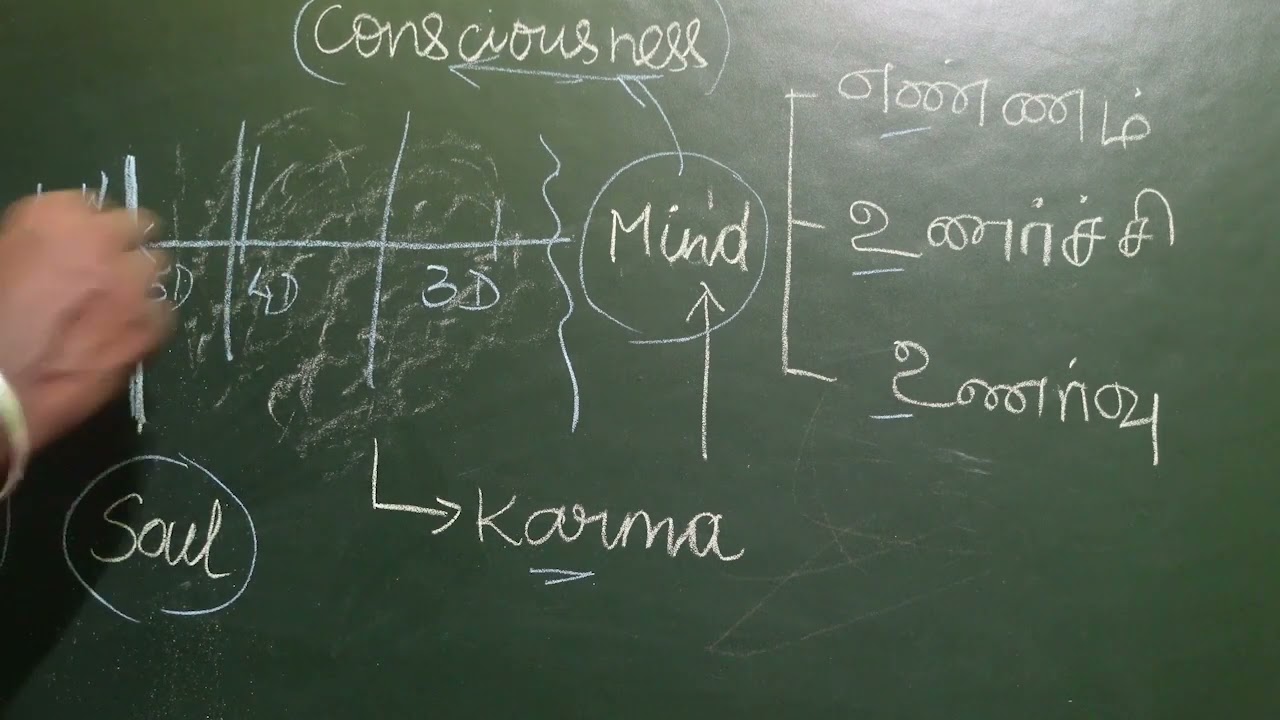 Consciousness
எண்ணம்
உணர்ச்சி
உணர்வு
Mind
4D
3D
Karma
Soul